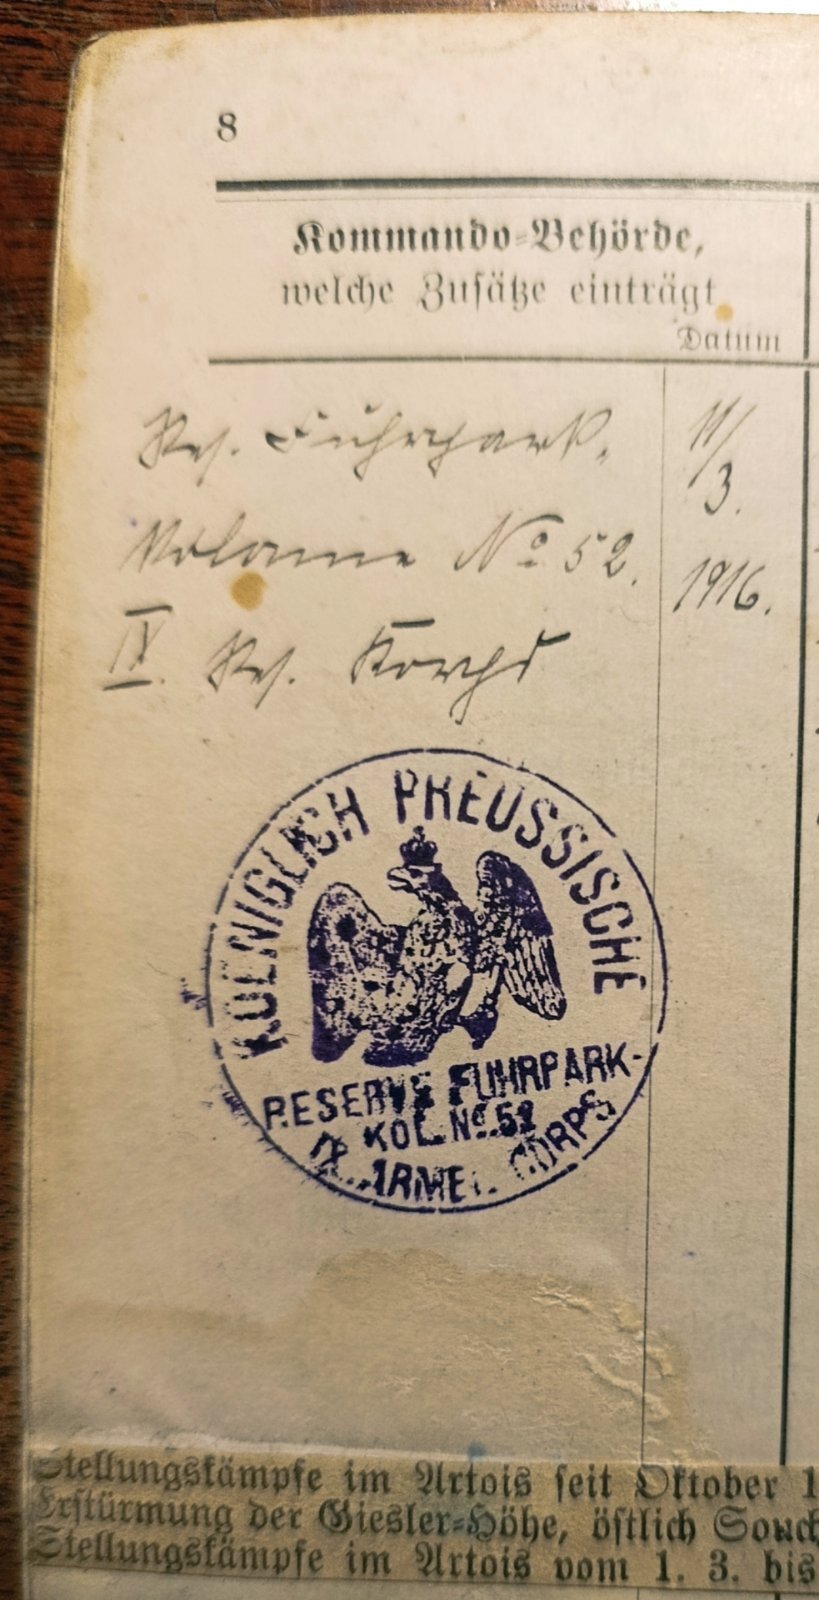 8
Kommando-Behörde,
welche Zusätze einträgt
Datum
Res. Fuhrpark, 11/3.
Kolonne No 52. 1916.
IX. Res. Korps
KOENIGLICH PREUSSISCHE
RESERVE FUHRPARK-
KOL. No. 52
IX. ARMEE CORPS
Stellungskämpfe im Artois seit Oktober 1
Erstürmung der Giesler-Höhe, östlich Souch
Stellungskämpfe im Artois vom 1. 3. bis